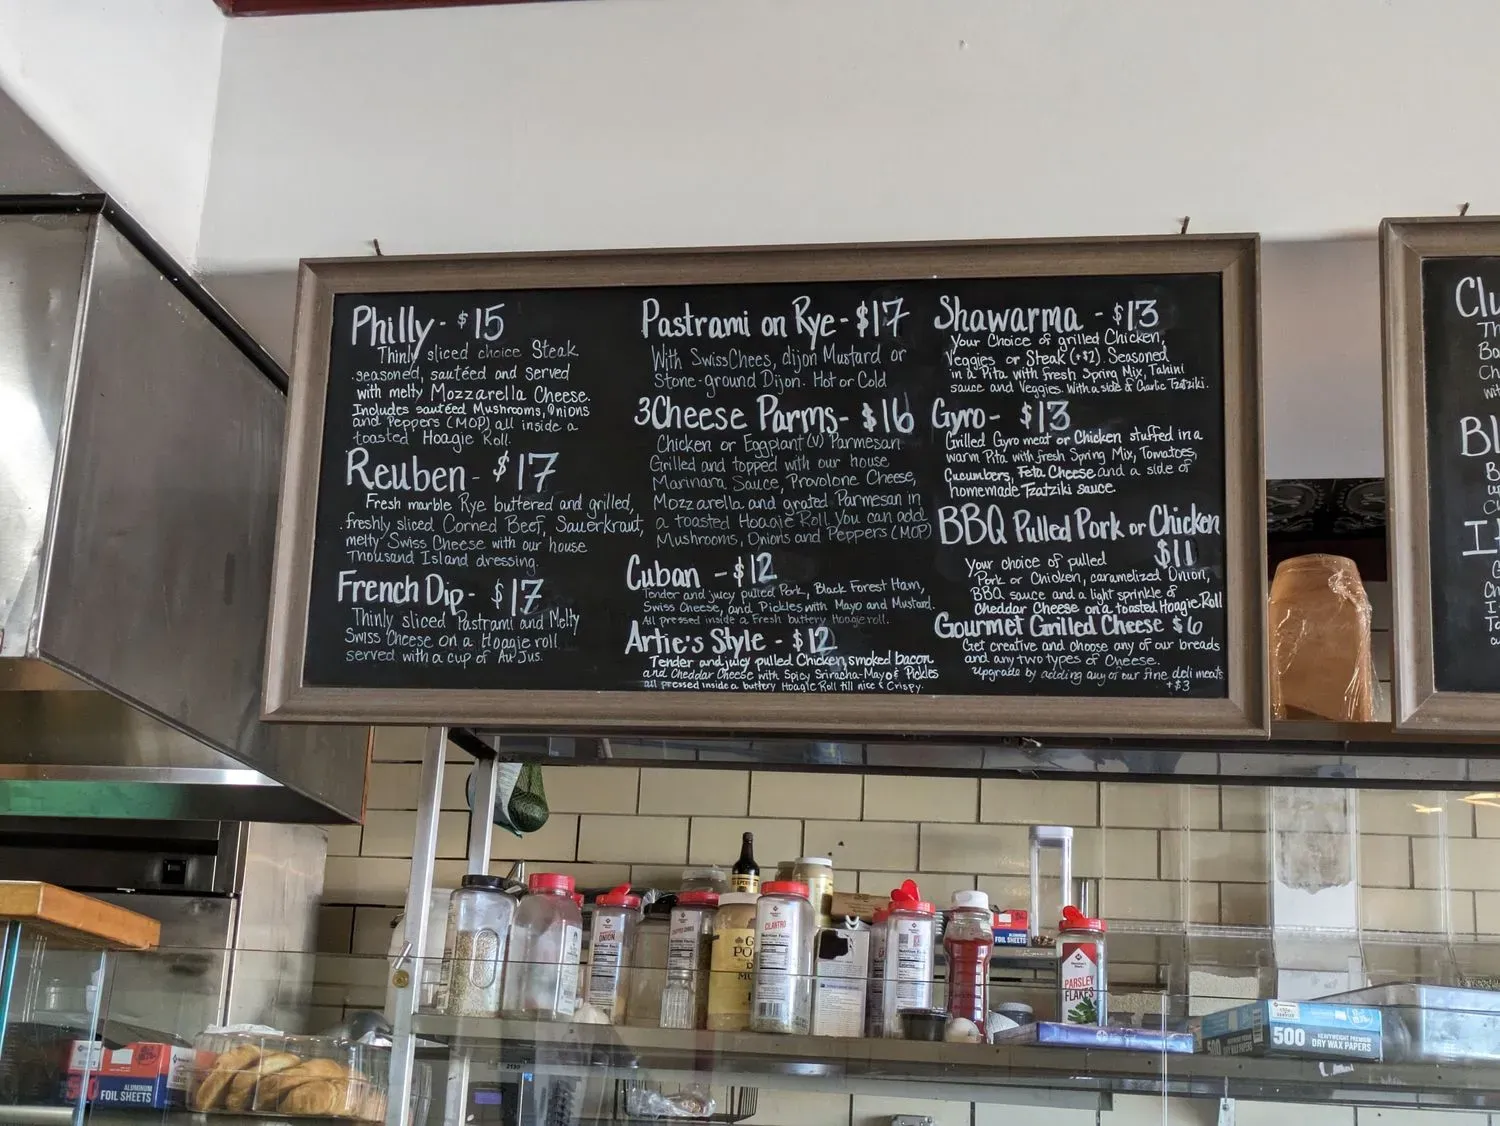 Philly - $15
Thinly sliced choice Steak
seasoned, sautéed and served
with melty Mozzarella Cheese.
Includes sautéed Mushrooms, Onions
and Peppers (MOP) all inside a
toasted Hoagie Roll.
Reuben - $17
Fresh marble Rye buttered and grilled,
freshly sliced Corned Beef, Sauerkraut,
melty Swiss Cheese with our house
Thousand Island dressing.
French Dip - $17
Thinly sliced Pastrami and Melty
Swiss Cheese on a Hoagie roll
served with a cup of Au Jus.
Pastrami on Rye - $17
With Swiss Chees, dijon Mustard or
Stone-ground Dijon. Hot or Cold
3Cheese Parms - $16
Chicken or Eggplant (V) Parmesan
Grilled and topped with our house
Marinara Sauce, Provolone Cheese,
Mozzarella and grated Parmesan in
a toasted Hoagie Roll. You can add
Mushrooms, Onions and Peppers (MOP)
Cuban - $12
Tender and juicy pulled Pork, Black Forest Ham,
Swiss Cheese, and Pickles with Mayo and Mustard.
All pressed inside a Fresh buttery Hoagie roll.
Artie's Style - $12
Tender and juicy pulled Chicken, smoked bacon
and Cheddar Cheese with Spicy Sriracha-Mayo & Pickles
all pressed inside a buttery Hoagie Roll till nice & Crispy.
Shawarma - $13
Your Choice of grilled Chicken,
Veggies or Steak (+$2). Seasoned
in a Pita with fresh Spring Mix, Tahini
sauce and Veggies. With a side of Garlic Tzatziki.
Gyro - $13
Grilled Gyro meat or Chicken stuffed in a
warm Pita with fresh Spring Mix, Tomatoes,
Cucumbers, Feta Cheese and a side of
homemade Tzatziki sauce.
BBQ Pulled Pork or Chicken
$11
Your choice of pulled
Pork or Chicken, caramelized Onion,
BBQ sauce and a light sprinkle of
Cheddar Cheese on a toasted Hoagie Roll
Gourmet Grilled Cheese $6
Get creative and choose any of our breads
and any two types of Cheese.
Upgrade by adding any of our fine deli meats
+$3
Clu
Bl
ONION
CILANTRO
PARSLEY
FLAKES
FOIL SHEETS
500
HEAVYWEIGHT PREMIUM
DRY WAX PAPERS
500
ALUMINUM
FOIL SHEETS